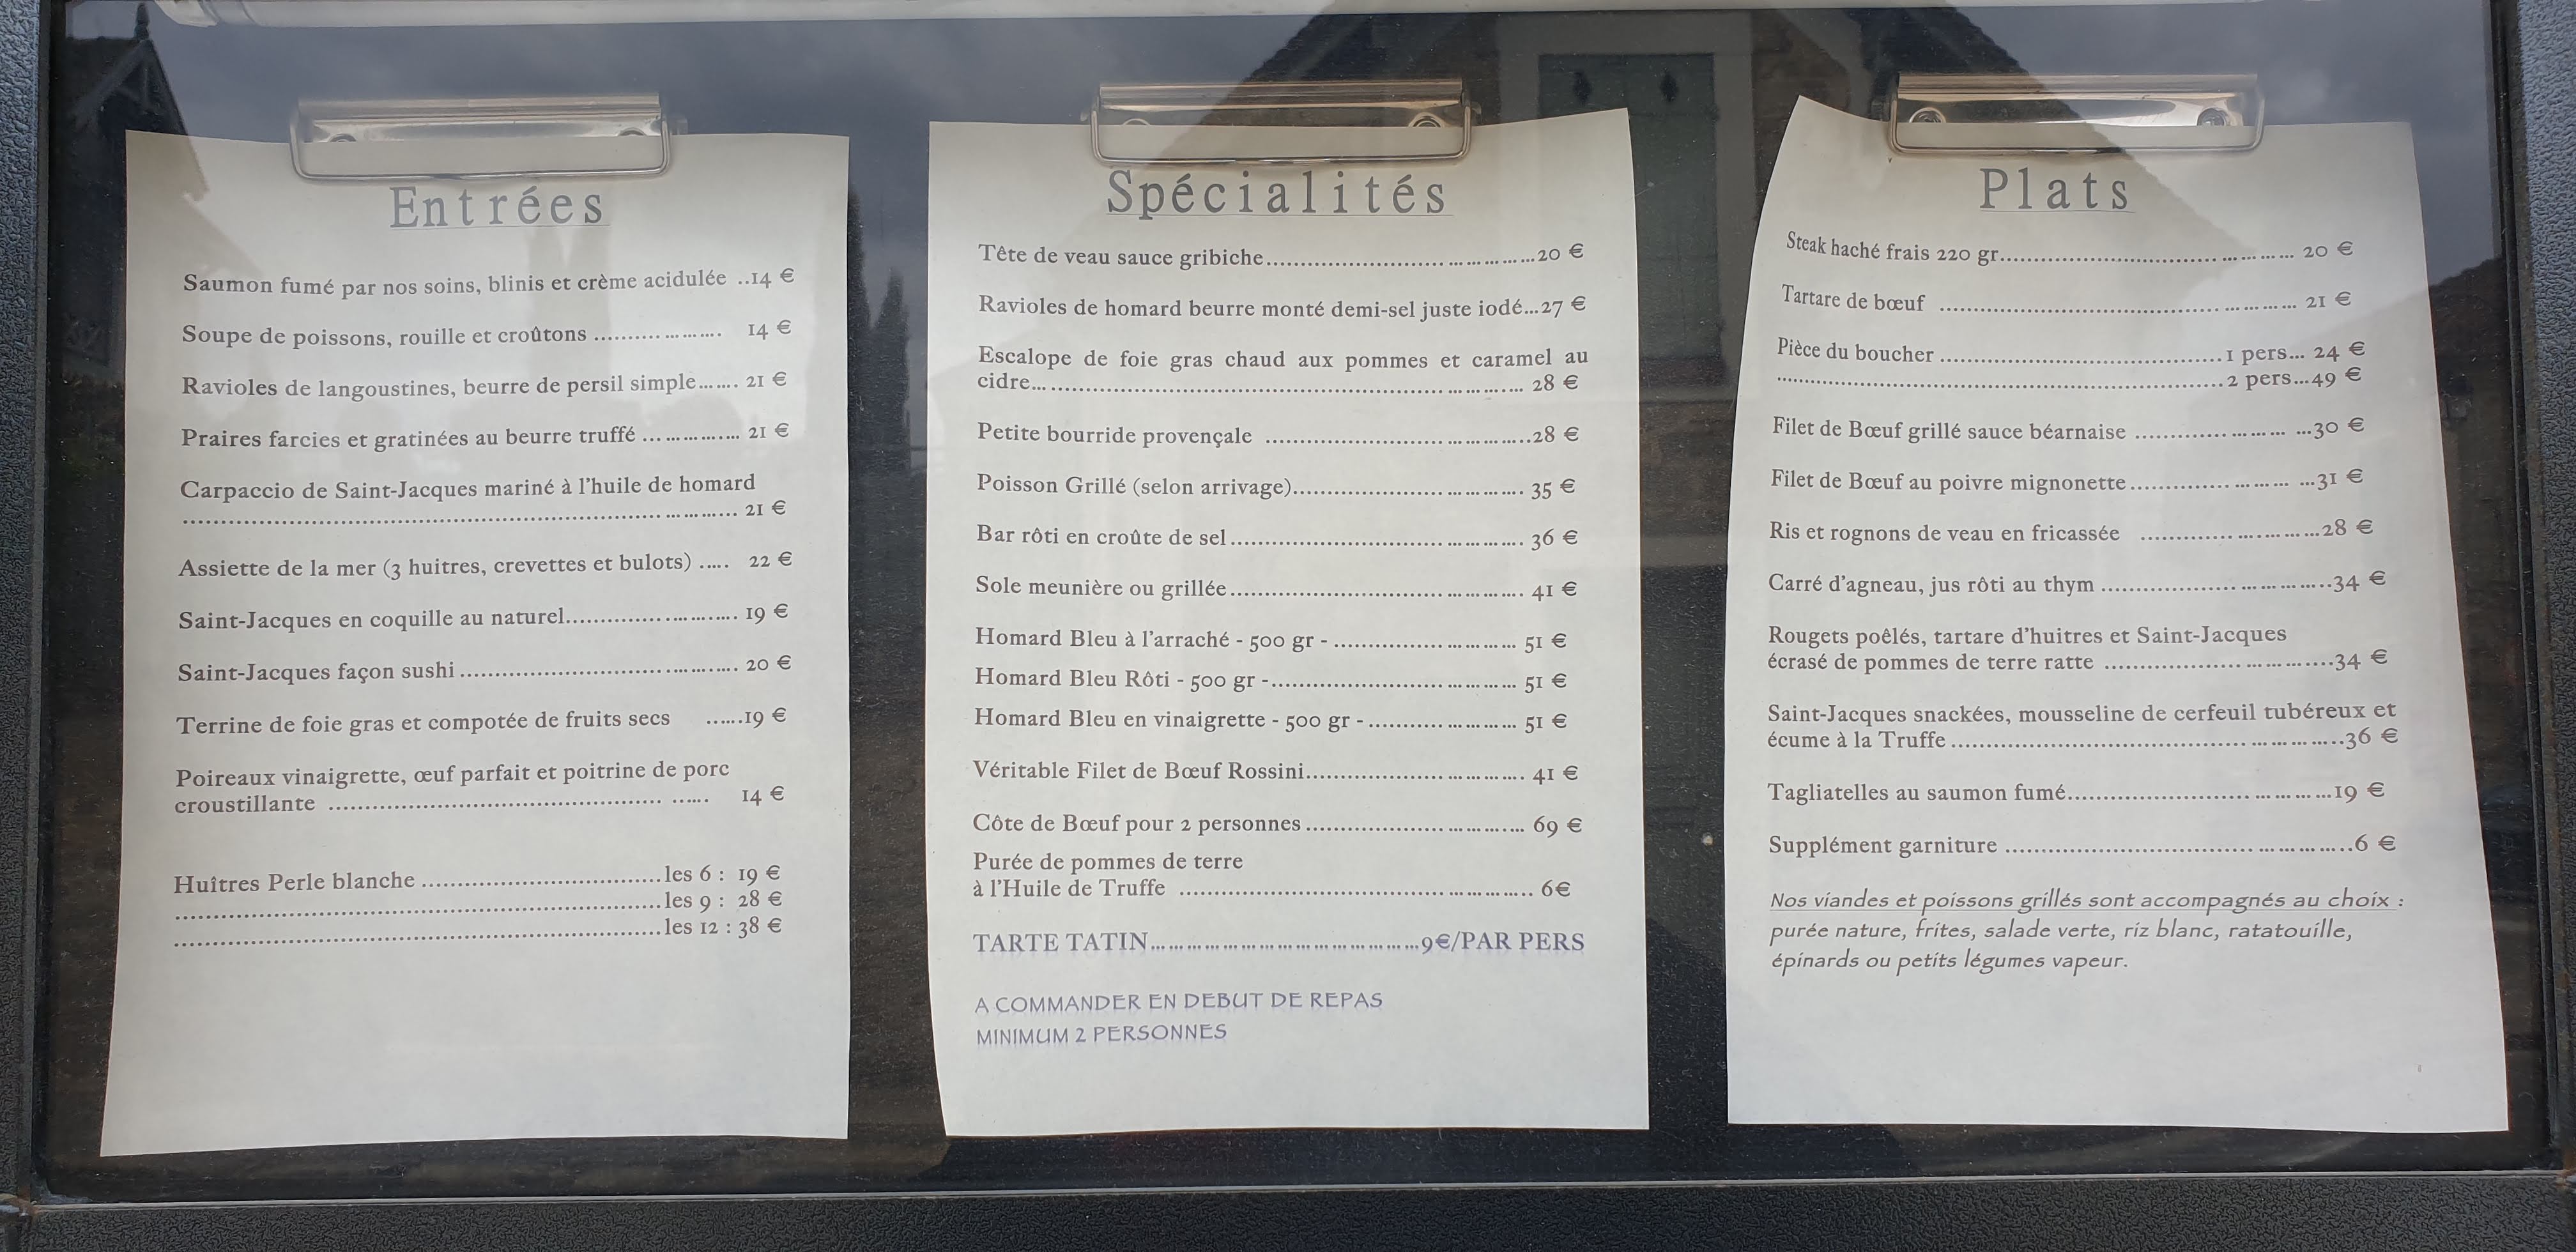 Entrées
Saumon fumé par nos soins, blinis et crème acidulée ..14 €
Soupe de poissons, rouille et croûtons ................... 14 €
Ravioles de langoustines, beurre de persil simple....... 21 €
Praires farcies et gratinées au beurre truffé ................ 21 €
Carpaccio de Saint-Jacques mariné à l'huile de homard
........................................................................ 21 €
Assiette de la mer (3 huitres, crevettes et bulots) ..... 22 €
Saint-Jacques en coquille au naturel......................... 19 €
Saint-Jacques façon sushi ........................................ 20 €
Terrine de foie gras et compotée de fruits secs ......19 €
Poireaux vinaigrette, œuf parfait et poitrine de porc
croustillante ................................................ 14 €
Huîtres Perle blanche ...................................les 6 : 19 €
......................................................................les 9 : 28 €
......................................................................les 12 : 38 €
Spécialités
Tête de veau sauce gribiche.......................................20 €
Ravioles de homard beurre monté demi-sel juste iodé...27 €
Escalope de foie gras chaud aux pommes et caramel au
cidre..................................................................... 28 €
Petite bourride provençale ......................................28 €
Poisson Grillé (selon arrivage)................................. 35 €
Bar rôti en croûte de sel........................................... 36 €
Sole meunière ou grillée........................................... 41 €
Homard Bleu à l'arraché - 500 gr - ........................... 51 €
Homard Bleu Rôti - 500 gr -.................................... 51 €
Homard Bleu en vinaigrette - 500 gr - ...................... 51 €
Véritable Filet de Bœuf Rossini................................ 41 €
Côte de Bœuf pour 2 personnes ................................ 69 €
Purée de pommes de terre
à l'Huile de Truffe .................................................. 6€
TARTE TATIN.............................................9€/PAR PERS
A COMMANDER EN DEBUT DE REPAS
MINIMUM 2 PERSONNES
Plats
Steak haché frais 220 gr.......................................... 20 €
Tartare de bœuf .................................................... 21 €
Pièce du boucher .........................................1 pers... 24 €
.................................................................2 pers...49 €
Filet de Bœuf grillé sauce béarnaise .........................30 €
Filet de Bœuf au poivre mignonette...........................31 €
Ris et rognons de veau en fricassée ..........................28 €
Carré d'agneau, jus rôti au thym ..................................34 €
Rougets poêlés, tartare d'huitres et Saint-Jacques
écrasé de pommes de terre ratte .................................34 €
Saint-Jacques snackées, mousseline de cerfeuil tubéreux et
écume à la Truffe .........................................................36 €
Tagliatelles au saumon fumé.......................................19 €
Supplément garniture ..................................................6 €
Nos viandes et poissons grillés sont accompagnés au choix :
purée nature, frites, salade verte, riz blanc, ratatouille,
épinards ou petits légumes vapeur.